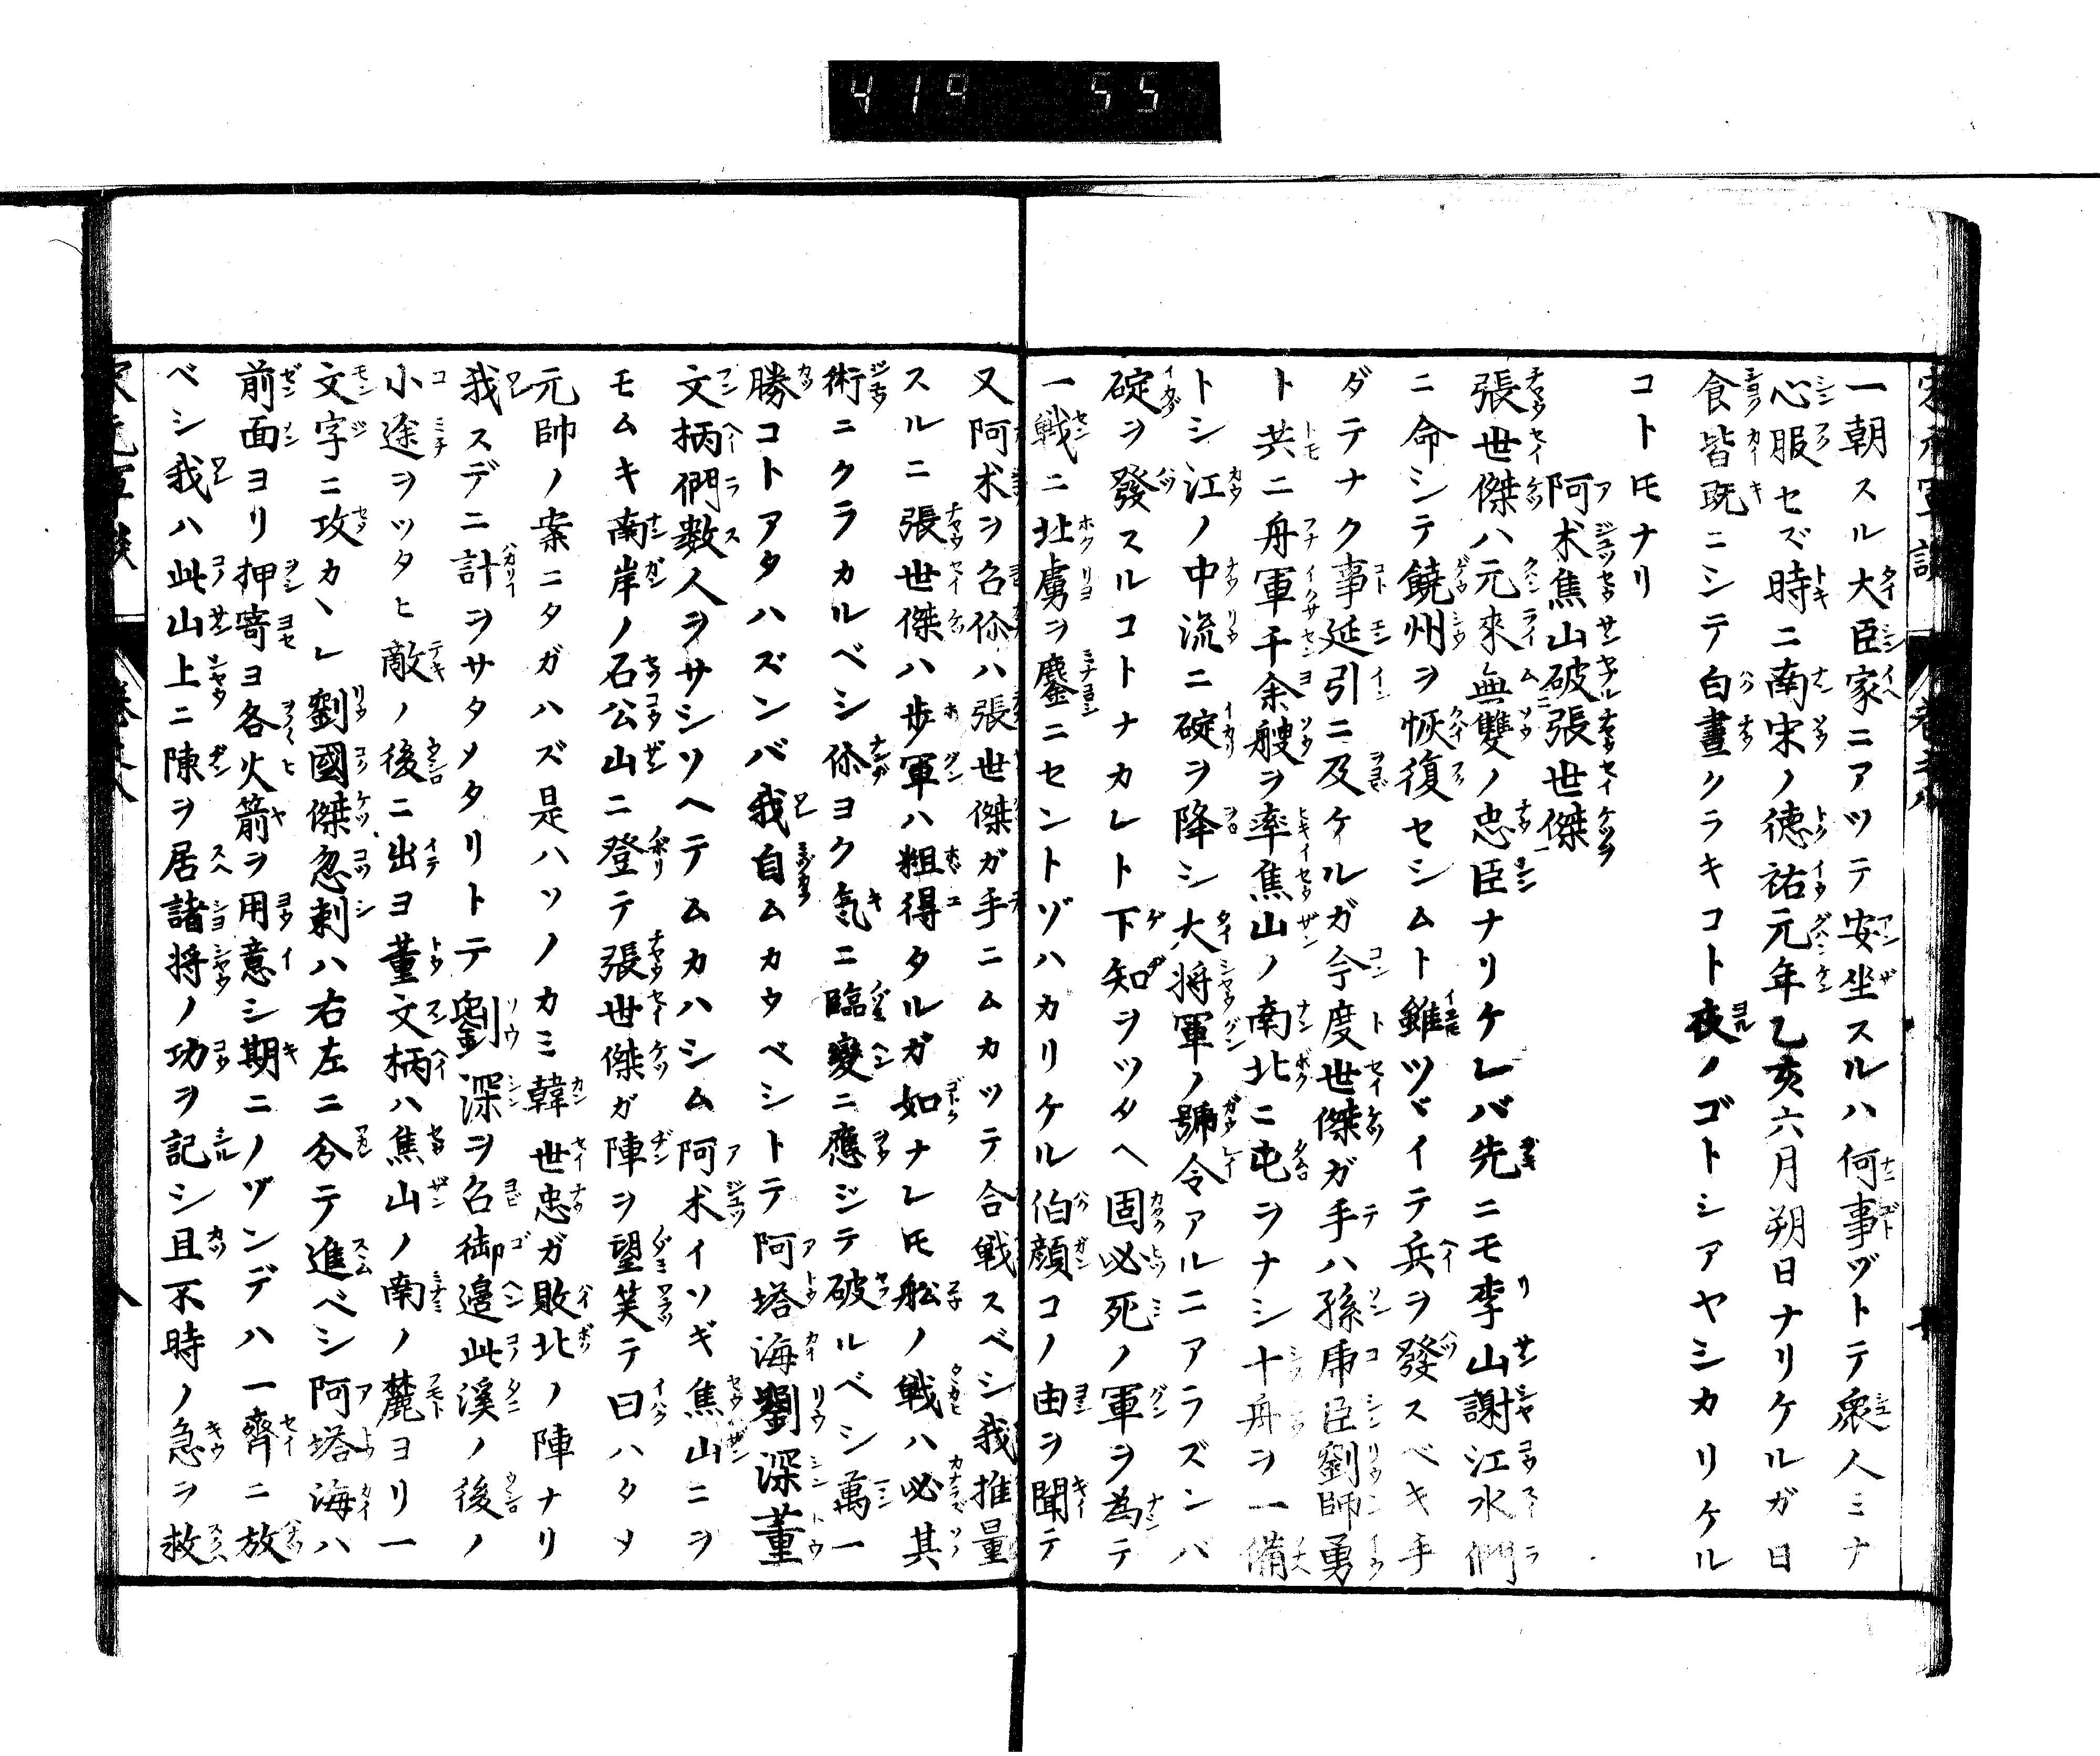 419 55
一朝スル大臣家ニアツテ安坐スルハ何事ヅトテ衆人ミナ
心服セズ時ニ南宋ノ徳祐元年乙亥六月朔日ナリケルガ日
食皆既ニシテ白晝クラキコト夜ノゴトシアヤシカリケル
コトモナリ
阿朮焦山破張世傑
張世傑ハ元來無雙ノ忠臣ナリケレバ先ニモ李山謝江水們
ニ命シテ饒州ヲ恢復セシムト雖ツヾイテ兵ヲ發スベキ手
ダテナク事延引ニ及ケルガ今度世傑ガ手ハ孫虎臣劉師勇
ト共ニ舟軍千余艘ヲ率焦山ノ南北ニ屯ヲナシ十舟ヲ一備
トシ江ノ中流ニ碇ヲ降シ大将軍ノ號令アルニアラズンバ
碇ヲ發スルコトナカレト下知ヲツタヘ固必死ノ軍ヲ為テ
一戦ニ北虜ヲ鏖ニセントゾハカリケル伯顔コノ由ヲ聞テ
又阿朮ヲ召你ハ張世傑ガ手ニムカツテ合戦スベシ我推量
スルニ張世傑ハ歩軍ハ粗得タルガ如ナレモ舩ノ戦ハ必其
術ニクラカルベシ你ヨク気ニ臨變ニ應ジテ破ルベシ萬一
勝コトアタハズンバ我自ムカウベシトテ阿塔海劉深董
文柄們数人ヲサシソヘテムカハシム阿朮イソギ焦山ニヲ
モムキ南岸ノ石公山ニ登テ張世傑ガ陣ヲ望笑テ曰ハタメ
元帥ノ案ニタガハズ是ハソノカミ韓世忠ガ敗北ノ陣ナリ
我スデニ計ヲサタメタリトテ劉深ヲ召御邊此溪ノ後ノ
小途ヲツタヒ敵ノ後ニ出ヨ董文柄ハ焦山ノ南ノ麓ヨリ一
文字ニ攻カヽレ劉國傑忽剌ハ右左ニ分テ進ベシ阿塔海ハ
前面ヨリ押寄ヨ各火箭ヲ用意シ期ニノゾンデハ一齊ニ放
ベシ我ハ此山上ニ陳ヲ居諸将ノ功ヲ記シ且不時ノ急ヲ救